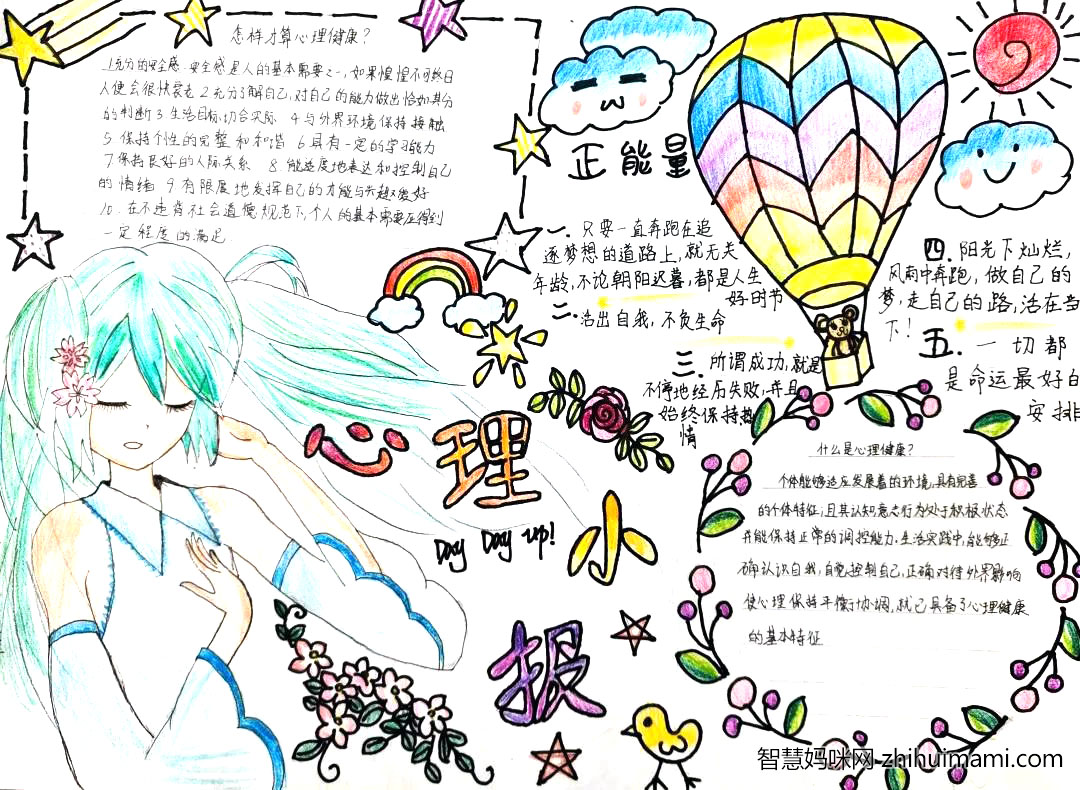 怎样才算心理健康？
1.充分的安全感.安全感是人的基本需要之一,如果惶惶不可终日
人便会很快衰老 2.充分了解自己,对自己的能力做出恰如其分
的判断 3.生活目标,切合实际 4.与外界环境保持接触
5 保持个性的完整和和谐 6.具有一定的学习能力
7.保持良好的人际关系 8.能适度地表达和控制自己
的情绪 9.有限度地发挥自己的才能与兴趣爱好
10.在不违背社会道德规范下,个人的基本需要应得到
一定程度的满足
正能量
一.只要一直奔跑在追
逐梦想的道路上,就无关
年龄,不论朝阳迟暮,都是人生
好时节
二.活出自我,不负生命
三.所谓成功,就是
不停地经历失败,并且
始终保持热
情
四.阳光下灿烂,
风雨中奔跑,做自己的
梦,走自己的路,活在当
下!
五.一切都
是命运最好的
安排
心理小报
Day Day up!
什么是心理健康?
个体能够适应发展着的环境,具有完善
的个体特征;且其认知意志行为处于积极状态
并能保持正常的调控能力.生活实践中,能够正
确认识自我,自觉控制自己,正确对待外界影响
使心理保持平衡协调,就已具备了心理健康
的基本特征
智慧妈咪网-zhihuimami.com